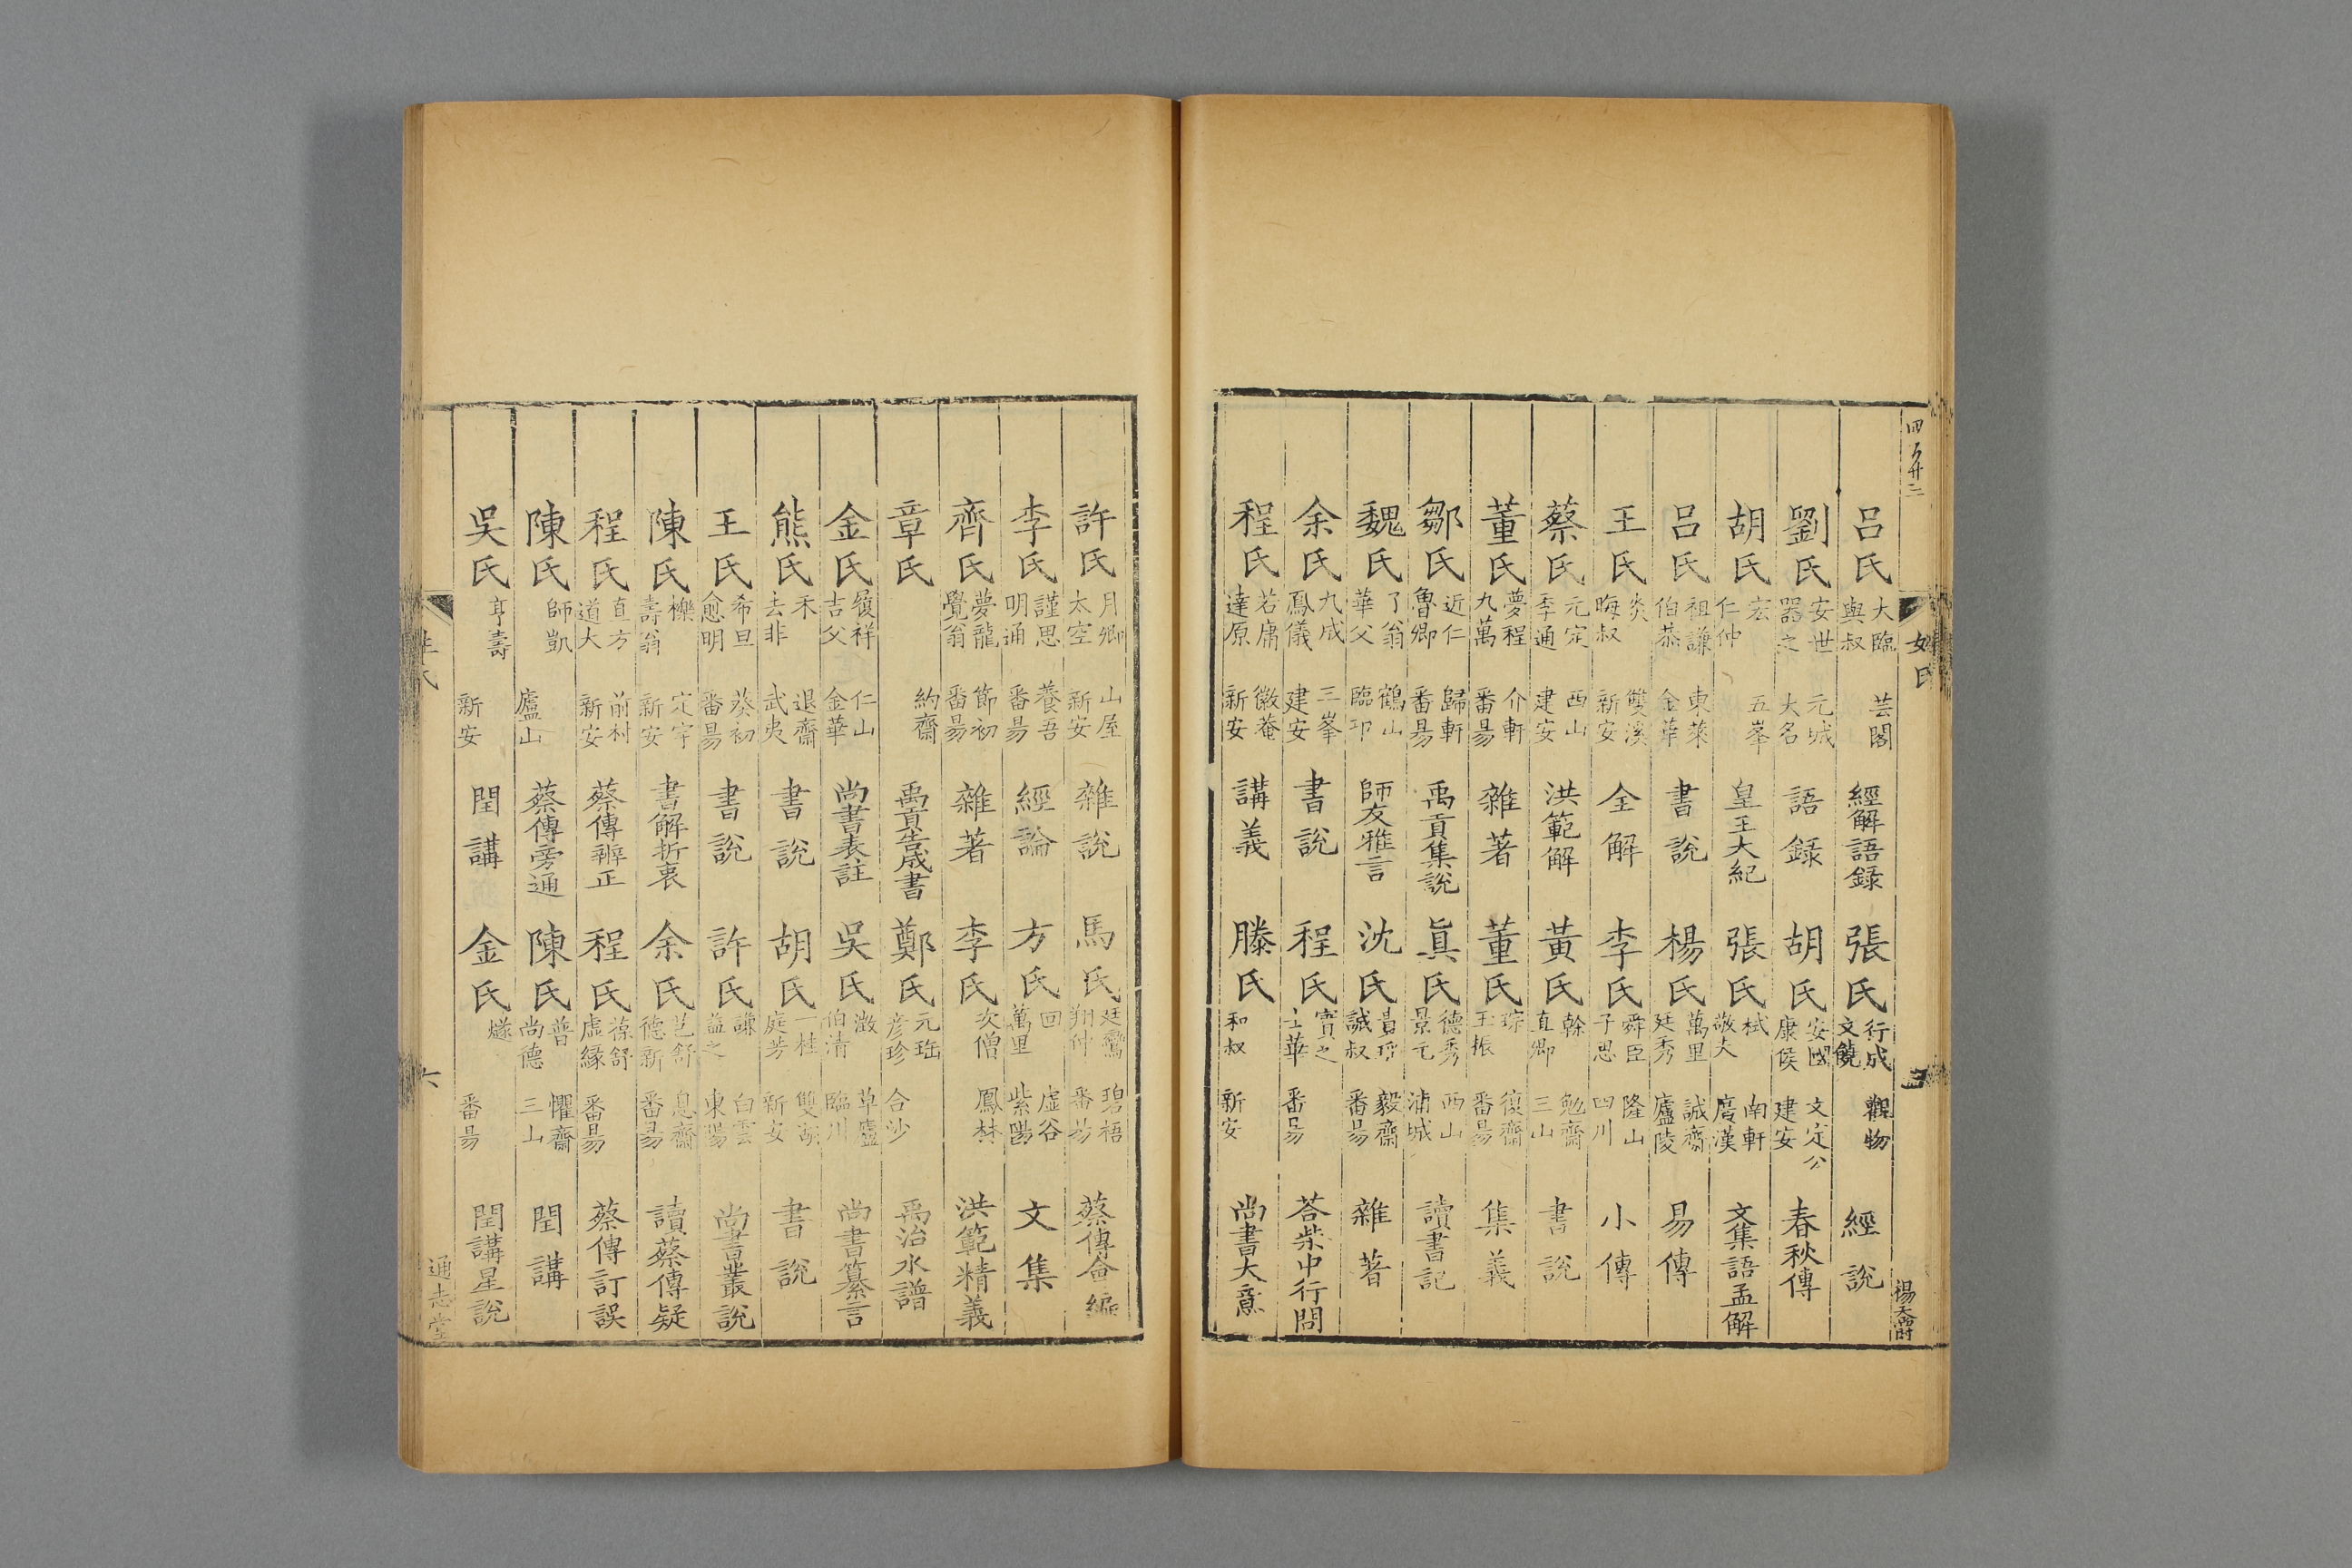 四百廿二
姓氏
楊天爵
呂氏 大臨 與叔 芸閣 經解語録 張氏 行成 文饒 觀物 經說
劉氏 安世 器之 元城 大名 語録 胡氏 安國 康侯 文定公 建安 春秋傳
胡氏 宏 仁仲 五峯 皇王大紀 張氏 栻 敬夫 南軒 廣漢 文集語孟解
呂氏 祖謙 伯恭 東萊 金華 書說 楊氏 萬里 廷秀 誠齋 廬陵 易傳
王氏 炎 晦叔 雙溪 新安 全解 李氏 舜臣 子思 隆山 四川 小傳
蔡氏 元定 季通 西山 建安 洪範解 黃氏 榦 直卿 勉齋 三山 書說
董氏 夢程 九萬 介軒 番昜 雜著 董氏 琮 玉振 復齋 番昜 集義
鄒氏 近仁 魯卿 歸軒 番昜 禹貢集說 眞氏 德秀 景元 西山 浦城 讀書記
魏氏 了翁 華父 鶴山 臨卭 師友雅言 沈氏 貴珤 誠叔 毅齋 番昜 雜著
余氏 九成 鳳儀 三峯 建安 書說 程氏 實之 士華 番昜 荅柴中行問
程氏 若庸 達原 徽菴 新安 講義 滕氏 和叔 新安 尚書大意
許氏 月卿 太空 山屋 新安 雜說 馬氏 廷鸞 翔仲 碧梧 番昜 蔡傳會編
李氏 謹思 明通 養吾 番昜 經論 方氏 回 萬里 虛谷 紫陽 文集
齊氏 夢龍 覺翁 節初 番昜 雜著 李氏 次僧 鳳林 洪範精義
章氏 約齋 禹貢告成書 鄭氏 元珤 彦珍 合沙 禹治水譜
金氏 履祥 吉父 仁山 金華 尚書表註 吳氏 澂 伯清 草廬 臨川 尚書纂言
熊氏 禾 去非 退齋 武夷 書說 胡氏 一桂 庭芳 雙湖 新安 書說
王氏 希旦 愈明 葵初 番昜 書說 許氏 謙 益之 白雲 東陽 尚書叢說
陳氏 櫟 壽翁 定宇 新安 書解折衷 余氏 芑舒 德新 息齋 番昜 讀蔡傳疑
程氏 直方 道大 前村 新安 蔡傳辨正 程氏 葆舒 虛縁 番昜 蔡傳訂誤
陳氏 師凱 廬山 蔡傳旁通 陳氏 普 尚德 懼齋 三山 閏講
吳氏 亨壽 新安 閏講 金氏 燧 番昜 閏講星說
六
通志堂